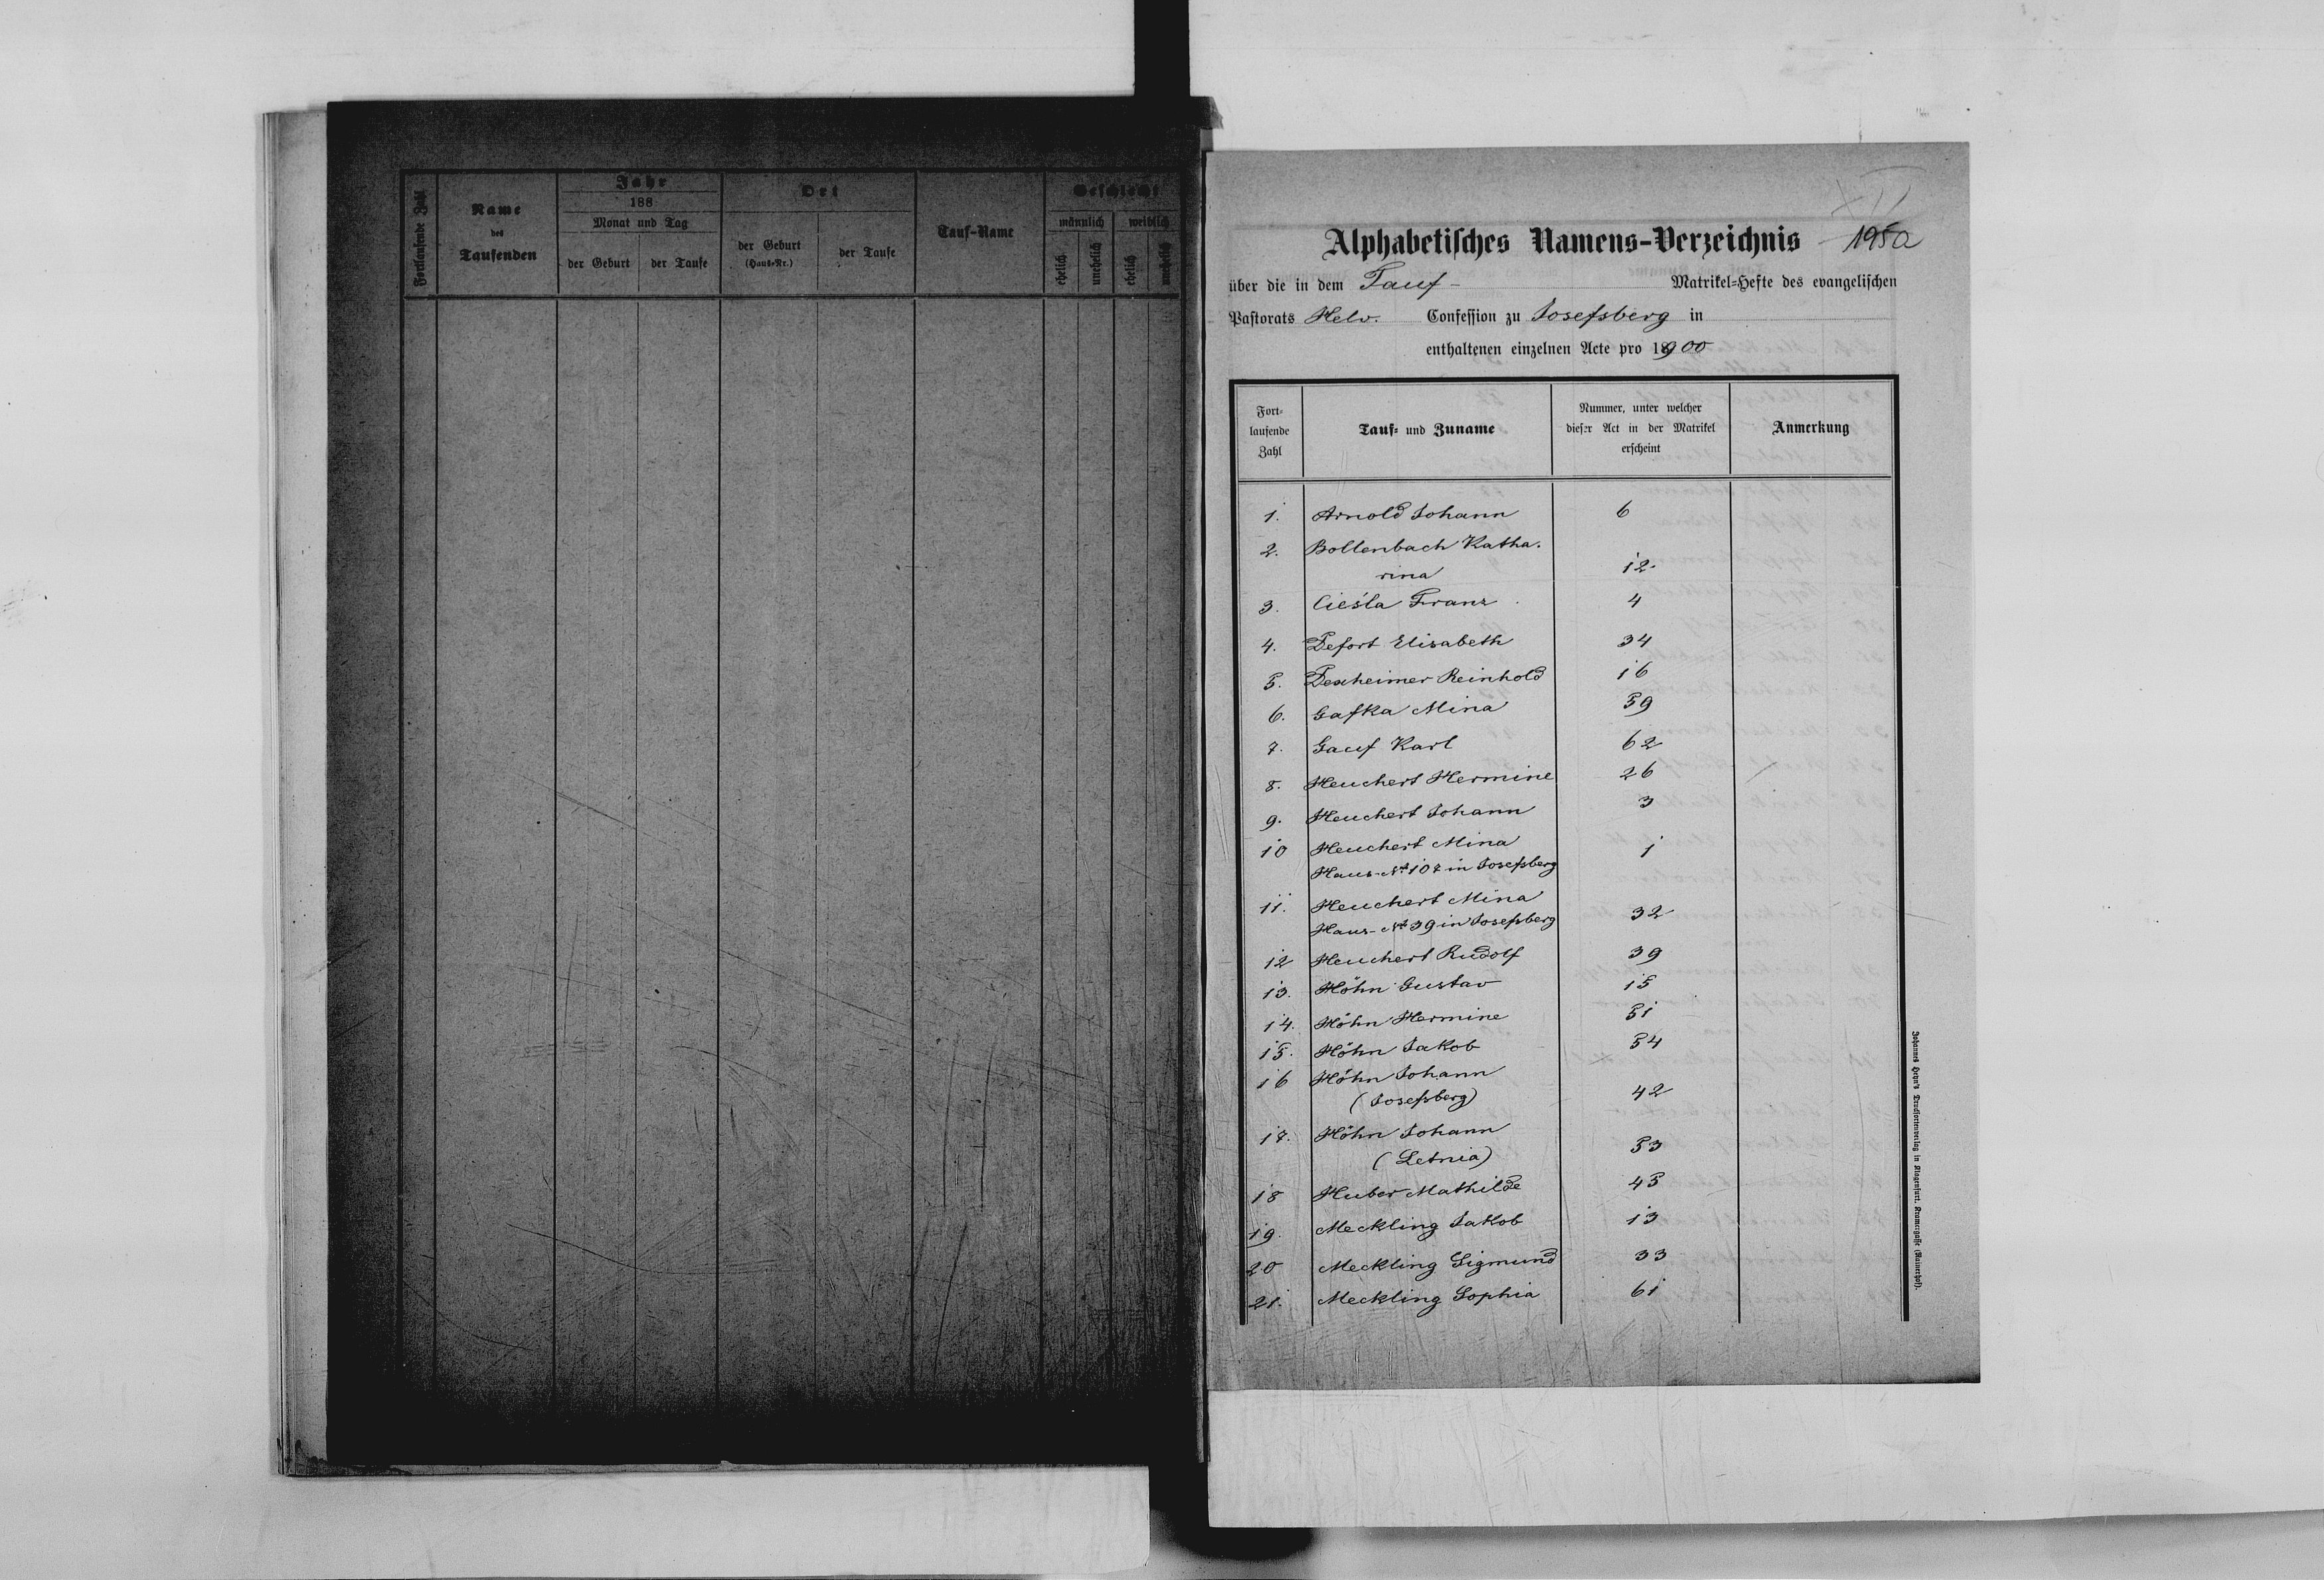 Fortlaufende Zahl
Name
des
Taufenden
Jahr
188
Monat und Tag
der Geburt
der Taufe
Ort
der Geburt
(Haus-Nr.)
der Taufe
Tauf-Name
Geschlecht
männlich
weiblich
ehelich
unehelich
ehelich
unehelich
XII
195a
Alphabetisches Namens-Verzeichnis
über die in dem Tauf- Matrikel-Hefte des evangelischen
Pastorats Helv. Confession zu Josefsberg in
enthaltenen einzelnen Acte pro 1900
Fort-
laufende
Zahl
Tauf- und Zuname
Nummer, unter welcher
dieser Act in der Matrikel
erscheint
Anmerkung
1. Arnold Johann 6
2. Bollenbach Katha-
rina 12
3. Cieśla Franz 4
4. Defort Elisabeth 34
5. Dexheimer Reinhold 16
6. Gafka Mina 59
7. Gauf Karl 62
8. Heuchert Hermine 26
9. Heuchert Johann 3
10 Heuchert Mina 1
Haus-Nr 107 in Josefsberg
11. Heuchert Mina 32
Haus-Nr 39 in Josefsberg
12 Heuchert Rudolf 39
13. Höhn Gustav 15
14. Höhn Hermine 51
15. Höhn Jakob 54
16 Höhn Johann
(Josefsberg) 42
17. Höhn Johann
(Letnia) 53
18 Huber Mathilde 45
19. Meckling Jakob 13
20 Meckling Sigmund 33
21. Meckling Sophia 61
Johannes Heyn's Drucksortenverlag in Klagenfurt, Kramergasse (Rainerhof).